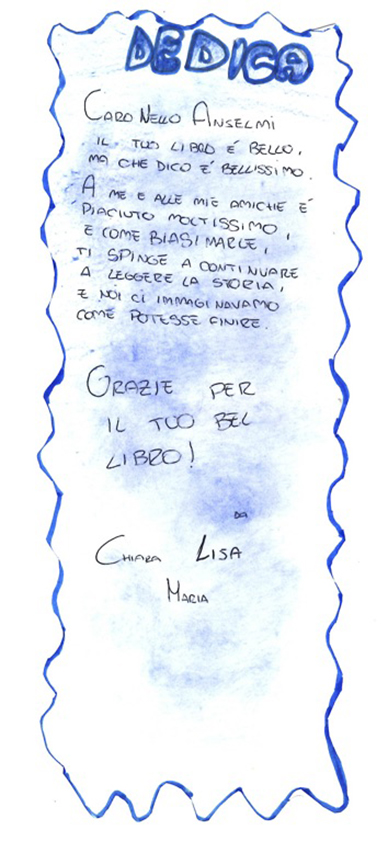 DEDICA
CARO NELLO ANSELMI
IL TUO LIBRO É BELLO,
MA CHE DICO É BELLISSIMO.
A ME E ALLE MIE AMICHE É
PIACIUTO MOLTISSIMO,
E COME BIASIMARLE,
TI SPINGE A CONTINUARE
A LEGGERE LA STORIA,
E NOI CI IMMAGINAVAMO
COME POTESSE FINIRE.
GRAZIE PER
IL TUO BEL
LIBRO!
DA
CHIARA LISA
MARIA